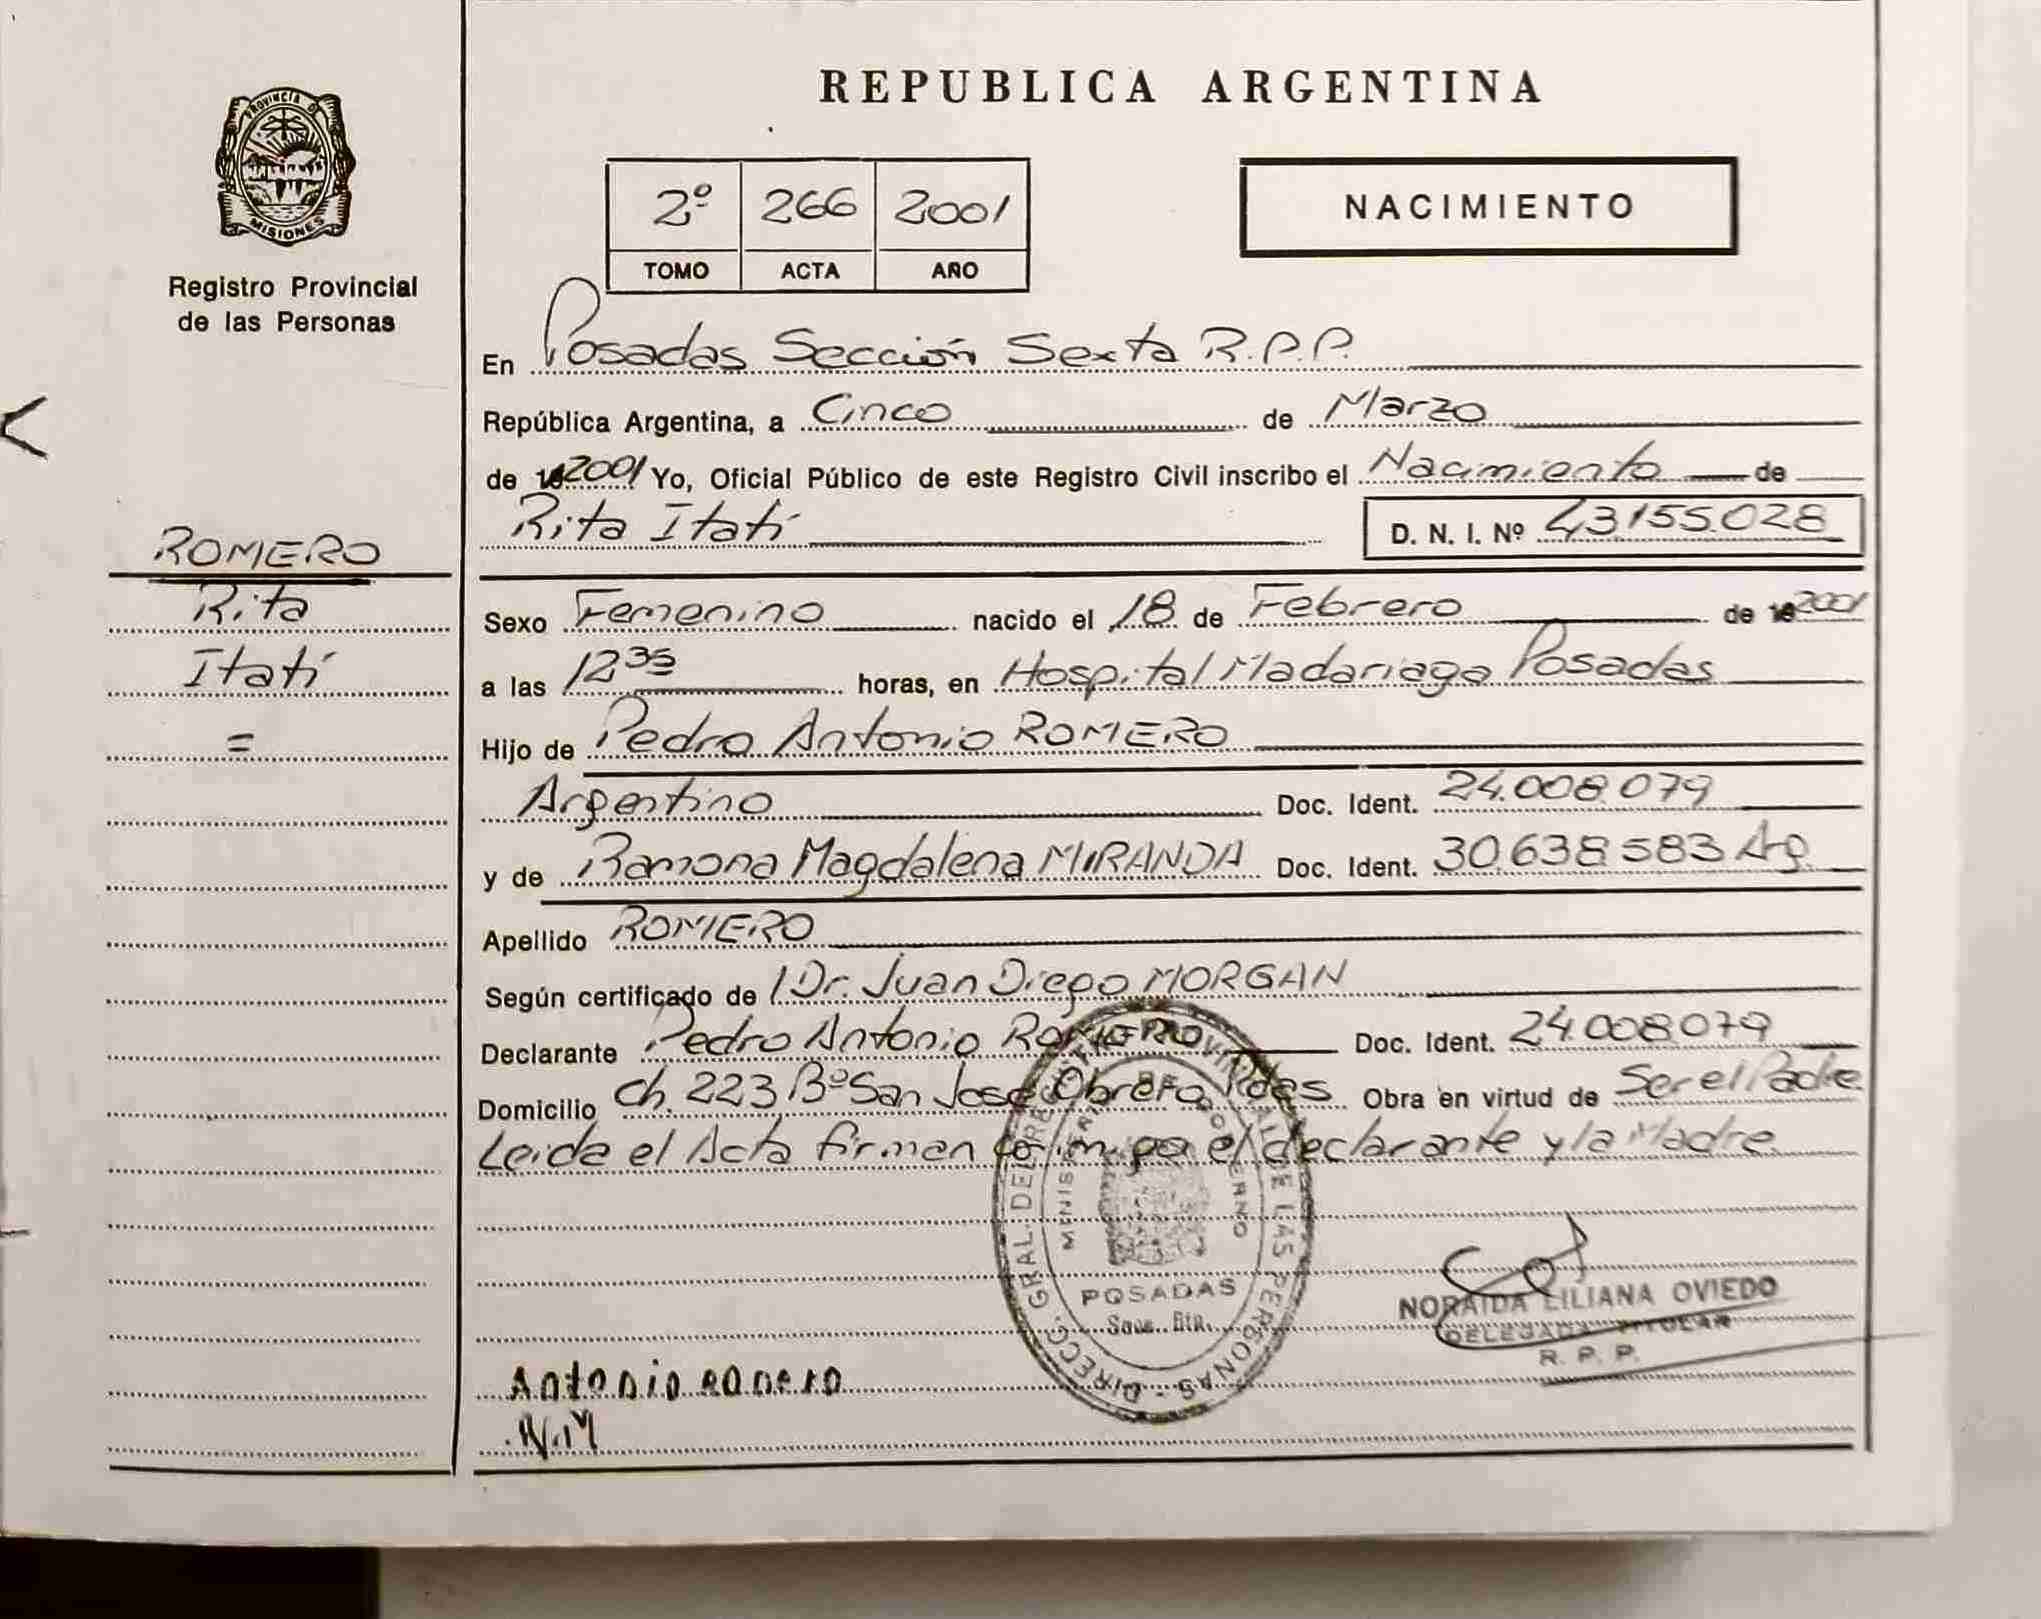 REPUBLICA ARGENTINA
PROVINCIA DE
MISIONES
Registro Provincial
de las Personas
2º 266 2001
TOMO ACTA AÑO
NACIMIENTO
En Posadas Sección Sexta R.P.P.
República Argentina, a Cinco de Marzo
de 2001 Yo, Oficial Público de este Registro Civil inscribo el Nacimiento de
Rita Itatí D. N. I. Nº 43155.028
ROMERO
Rita
Itatí
=
Sexo Femenino nacido el 18 de Febrero de 2001
a las 12 35 horas, en Hospital Madariaga Posadas
Hijo de Pedro Antonio ROMERO
Argentino Doc. Ident. 24.008.079
y de Ramona Magdalena MIRANDA Doc. Ident. 30.638.583 Ag.
Apellido ROMERO
Según certificado de Dr. Juan Diego MORGAN
Declarante Pedro Antonio ROMERO Doc. Ident. 24.008.079
Domicilio Ch. 223 Bº San José Obrero Pdas Obra en virtud de Ser el Padre
Leida el Acta firman conmigo el declarante y la Madre
DIRECC. GRAL. DEL REG. PROVINCIAL DE LAS PERSONAS
MINISTERIO DE GOBIERNO
POSADAS
NORAIDA LILIANA OVIEDO
DELEGADA TITULAR
R. P. P.
Antonio ROMERO